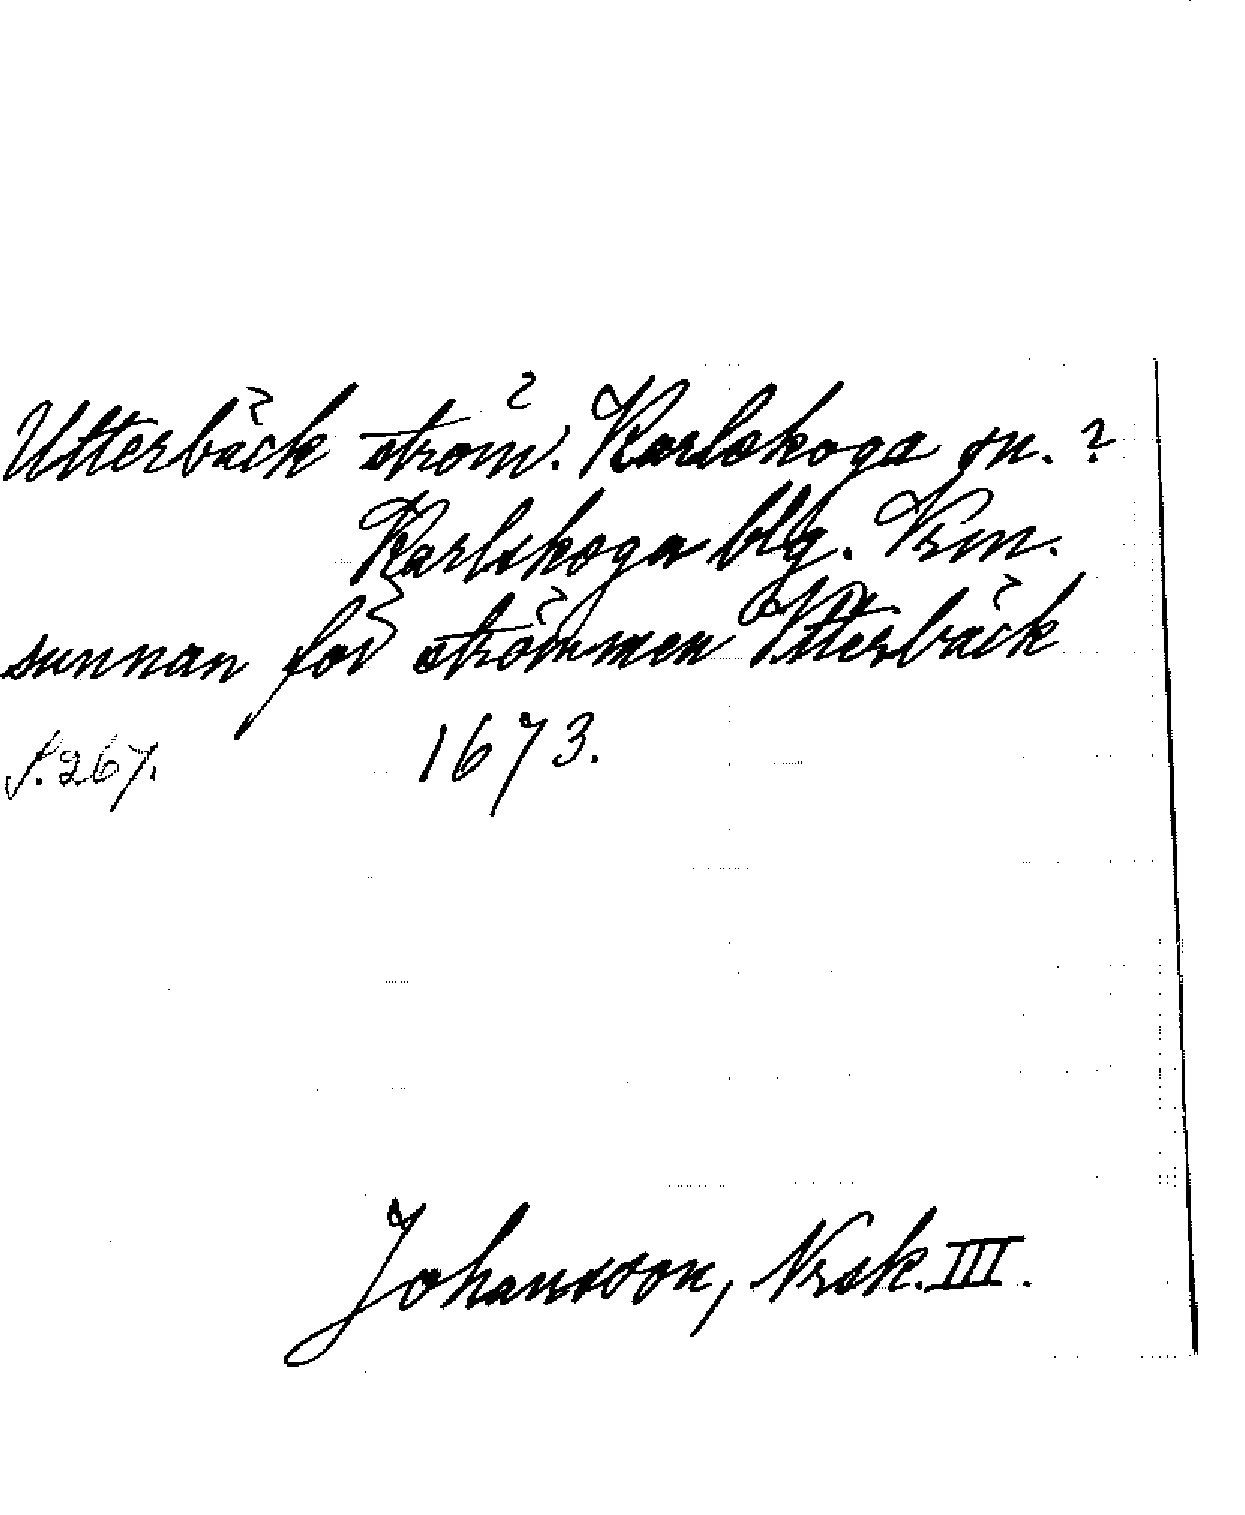 Utterbäck ström. Karlskoga sn. ?
Karlskoga blg. Vrm.
sunnan för strömmen Utterbäck
S. 267. 1673.
Johansson, Nrsk. III.